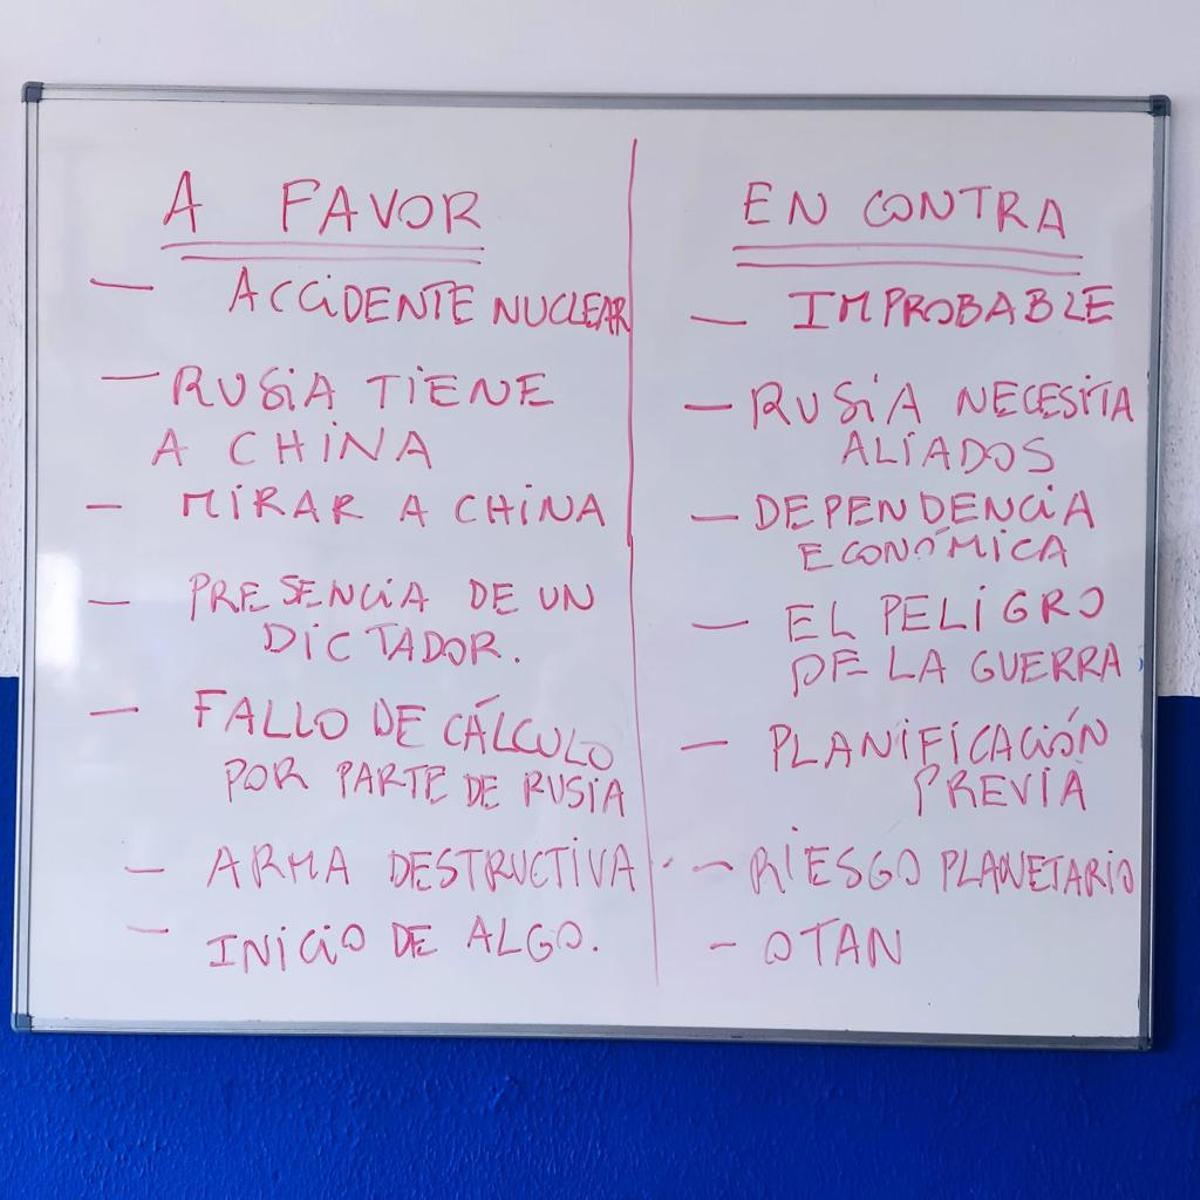 A FAVOR
— ACCIDENTE NUCLEAR
— RUSIA TIENE
A CHINA
— MIRAR A CHINA
— PRESENCIA DE UN
DICTADOR.
— FALLO DE CÁLCULO
POR PARTE DE RUSIA
— ARMA DESTRUCTIVA
— INICIO DE ALGO.
EN CONTRA
— IMPROBABLE
— RUSIA NECESITA
ALIADOS
— DEPENDENCIA
ECONÓMICA
— EL PELIGRO
DE LA GUERRA
— PLANIFICACIÓN
PREVIA
— RIESGO PLANETARIO
– OTAN